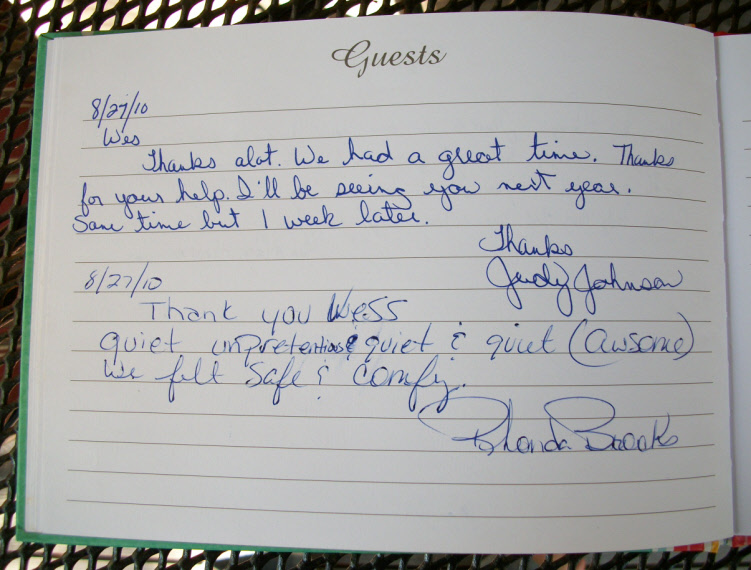 Guests
8/27/10
Wes
Thanks alot. We had a great time. Thanks
for your help. I'll be seeing you next year.
Same time but 1 week later.
Thanks
8/27/10 Judy Johnson
Thank you Wess
quiet unpretentious & quiet & quiet (awsome)
We felt safe & comfy.
Rhonda Brooks